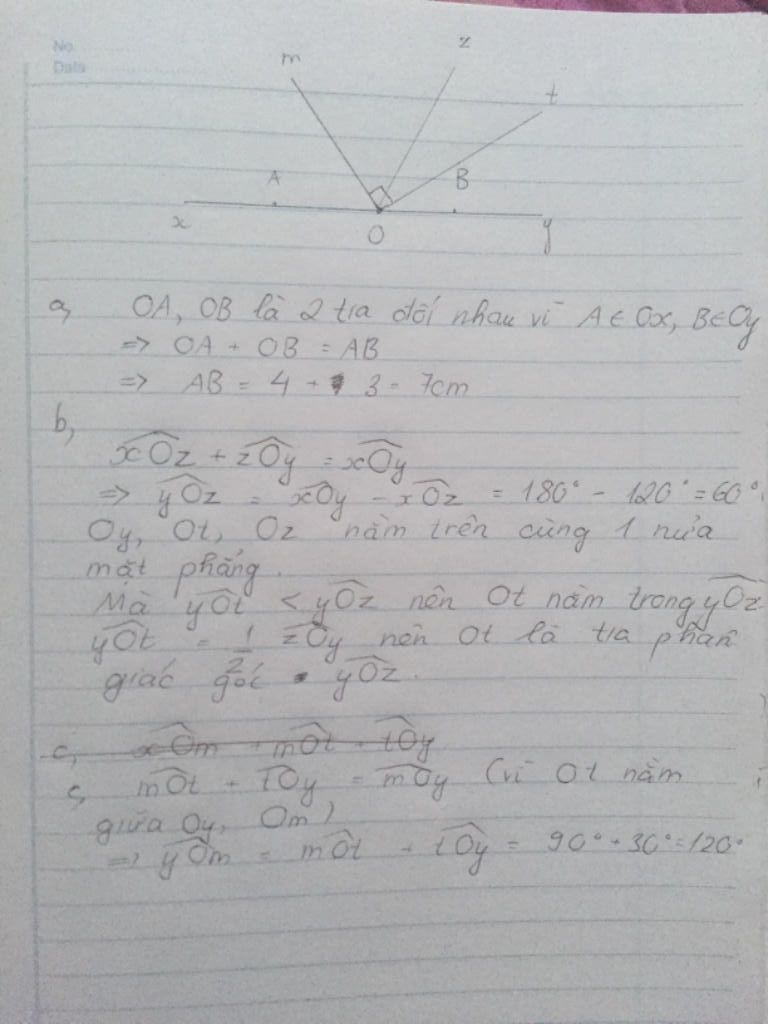 No.
Date
m
z
t
A
B
x
O
y
a, OA, OB là 2 tia đối nhau vì A ∈ Ox, B ∈ Oy
=> OA + OB = AB
=> AB = 4 + 3 = 7cm
b,
xÔz + zÔy = xÔy
=> yÔz = xÔy - xÔz = 180° - 120° = 60°.
Oy, Ot, Oz nằm trên cùng 1 nửa
mặt phẳng.
Mà yÔt < yÔz nên Ot nằm trong yÔz
yÔt = 1/2 zÔy nên Ot là tia phân
giác góc yÔz.
c, xÔm + mÔt + tÔy
c, mÔt + tÔy = mÔy (vì Ot nằm
giữa Oy, Om)
=> yÔm = mÔt + tÔy = 90° + 30° = 120°